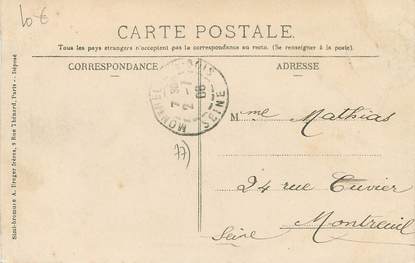 10€
CARTE POSTALE.
Tous les pays étrangers n'acceptent pas la correspondance au recto. (Se renseigner à la poste).
CORRESPONDANCE
ADRESSE
7 30
2 - 1
08
SEINE
Mme Mathias
77
24 rue Cuvier
Montreuil
Seine
Simi-bromure A. Breger frères, 9 Rue Thénard, Paris - Déposé